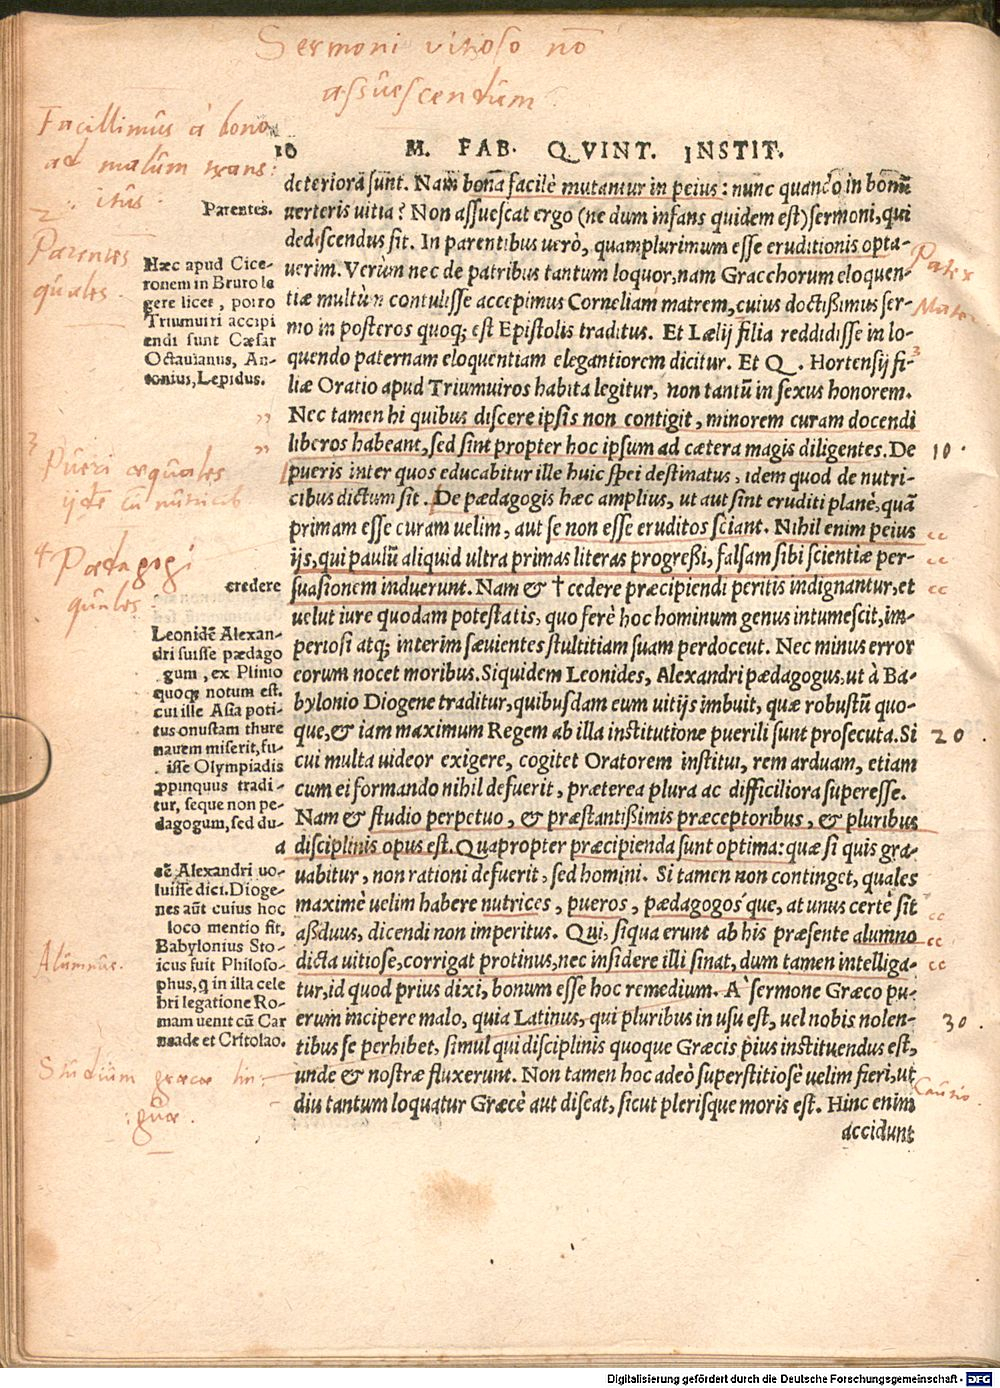 Sermoni vitioso nõ
assuescendum.
Facillimus à bono
ad malum trans:
itus.
2
Parentes
quales.
3
Pueri æquales
ijdē cū nutricib
4
Pædagogi
quales.
Alumnus.
Studium græcæ lin:
guæ.
Parentes.
Hæc apud Cice-
ronem in Bruto le
gere licet, porro
Triumuiri accipi
endi sunt Cæsar
Octauianus, An-
tonius, Lepidus.
credere
Leonidē Alexan-
dri fuisse pædago
gum, ex Plinio
quoq; notum est.
cui ille Asia poti-
tus onustam thure
nauem miserit, fu-
isse Olympiadis
ppinquus tradi-
tur, seque non pe-
dagogum, sed du-
a
cē Alexandri uo-
luisse dici. Dioge-
nes aūt cuius hoc
loco mentio fit,
Babylonius Sto-
icus fuit Philoso-
phus, q in illa cele
bri legatione Ro-
mam uenit cū Car
neade et Critolao.
10 M. FAB. QVINT. INSTIT.
deteriora sunt. Nam bona facilè mutantur in peius: nunc quando in bonū
uerteris uitia? Non assuescat ergo (ne dum infans quidem est) sermoni, qui
dediscendus sit. In parentibus uerò, quamplurimum esse eruditionis opta-
uerim. Verùm nec de patribus tantum loquor, nam Gracchorum eloquen-
tiæ multùm contulisse accepimus Corneliam matrem, cuius doctißimus ser-
mo in posteros quoq; est Epistolis traditus. Et Lælij filia reddidisse in lo-
quendo paternam eloquentiam elegantiorem dicitur. Et Q. Hortensij fi-
liæ Oratio apud Triumuiros habita legitur, non tantū in sexus honorem.
Nec tamen hi quibus discere ipsis non contigit, minorem curam docendi
liberos habeant, sed sint propter hoc ipsum ad cætera magis diligentes. De
pueris inter quos educabitur ille huic spei destinatus, idem quod de nutri-
cibus dictum sit. De pædagogis hæc amplius, ut aut sint eruditi planè, quā
primam esse curam uelim, aut se non esse eruditos sciant. Nihil enim peius
ijs, qui paulū aliquid ultra primas literas progreßi, falsam sibi scientiæ per-
suasionem induerunt. Nam & † cedere præcipiendi peritis indignantur, et
uelut iure quodam potestatis, quo ferè hoc hominum genus intumescit, im-
periosi atq; interim sæuientes stultitiam suam perdoceut. Nec minus error
eorum nocet moribus. Siquidem Leonides, Alexandri pædagogus, ut à Ba-
bylonio Diogene traditur, quibusdam eum uitijs imbuit, quæ robustū quo-
que, & iam maximum Regem ab illa institutione puerili sunt prosecuta. Si
cui multa uideor exigere, cogitet Oratorem institui, rem arduam, etiam
cum ei formando nihil defuerit, præterea plura ac difficiliora superesse.
Nam & studio perpetuo, & præstantißimis præceptoribus, & pluribus
disciplinis opus est. Quapropter præcipienda sunt optima: quæ si quis gra-
uabitur, non rationi defuerit, sed homini. Si tamen non continget, quales
maximè uelim habere nutrices, pueros, pædagogos que, at unus certè sit
aßduus, dicendi non imperitus. Qui, siqua erunt ab his præsente alumno
dicta uitiose, corrigat protinus, nec insidere illi sinat, dum tamen intelliga-
tur, id quod prius dixi, bonum esse hoc remedium. A` sermone Græco pu-
erum incipere malo, quia Latinus, qui pluribus in usu est, uel nobis nolen-
tibus se perhibet, simul qui disciplinis quoque Græcis pius instituendus est,
unde & nostræ fluxerunt. Non tamen hoc adeò superstitiosè uelim fieri, ut
diu tantum loquatur Græcè aut discat, sicut plerisque moris est. Hinc enim
accidunt
Pater
Mater
3
10
20
30
Cautio.
Digitalisierung gefördert durch die Deutsche Forschungsgemeinschaft - DFG